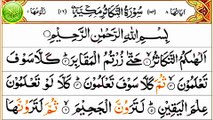 سُوْرَةُ التَّكَاثُرِ مَكِّيَّةٌ
بِسْمِ اللّٰهِ الرَّحْمٰنِ الرَّحِيْمِ
اَلْهٰىكُمُ التَّكَاثُرُ ۙ حَتّٰى زُرْتُمُ الْمَقَابِرَ ؕ كَلَّا سَوْفَ
تَعْلَمُوْنَ ۙ ثُمَّ كَلَّا سَوْفَ تَعْلَمُوْنَ ؕ كَلَّا لَوْ تَعْلَمُوْنَ
عِلْمَ الْيَقِيْنِ ؕ لَتَرَوُنَّ الْجَحِيْمَ ۙ ثُمَّ لَتَرَوُنَّهَا